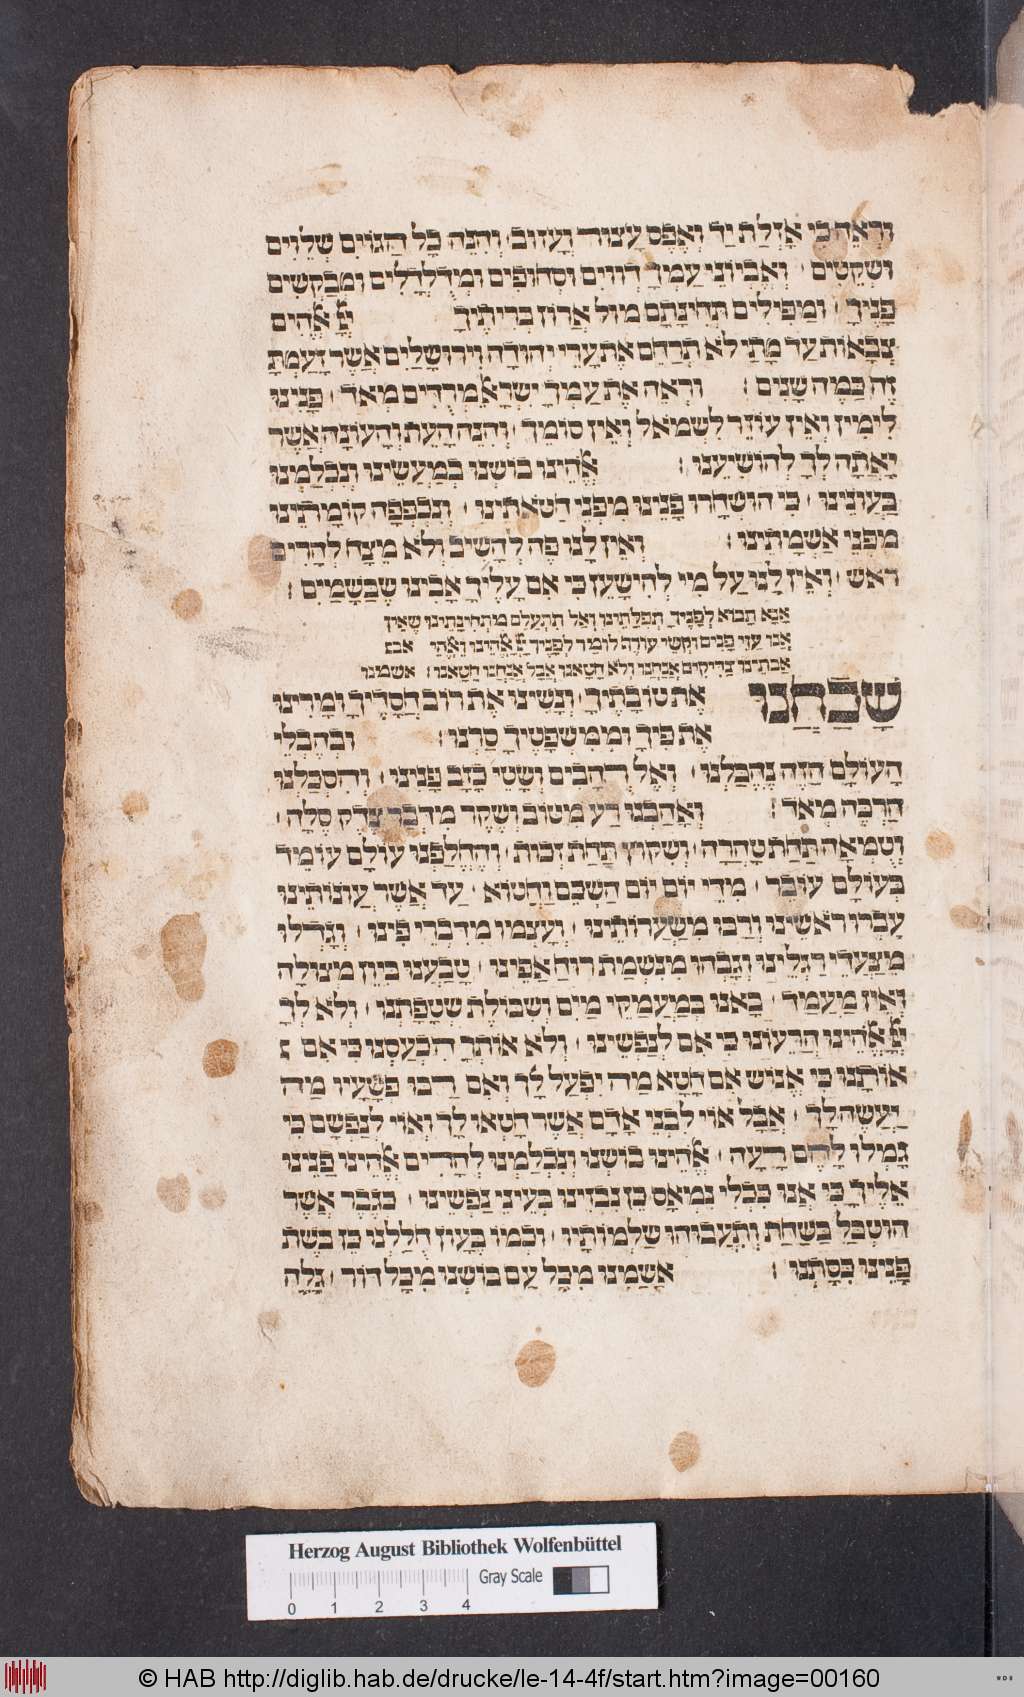 וראה כי אזלת יד ואפס עצור ועזוב והנה כל הגוים שלוים
ושקטים ואביוני עמך דוויים וסחופים ומדלדלים ומבקשים
פניך ומפילים תחינתם מול ארון בריתיך יי אלהים
צבאות עד מתי לא תרחם את ערי יהודה וירושלים אשר זעמת
זה כמה שנים : וראה את עמך ישרא מרדים מאד פנינו
לימין ואין עוזר לשמאל ואין סומך והנה העת והעונה אשר
יאתה לך להושיענו : אלהינו בושנו במעשינו ונכלמנו
בעונינו כי הושחרו פנינו מפני חטאתינו ונכפפה קומתינו
מפני אשמתינו : ואין לנו פה להשיב ולא מצח להרים
ראש ואין לנו על מי להישען כי אם עליך אבינו שבשמים :
אנא תבוא לפניך תפלתינו ואל תתעלם מתחינתינו שאין
אנו עזי פנים וקשי עורף לומר לפניך יי אלהינו ואלהי אבו
אבתינו צדיקים אנחנו ולא חטאנו אבל אנחנו חטאנו : אשמינו
שכחנו את טובתיך ונשינו את רוב חסדיך ומרינו
את פיך וממשפטיך סרנו : ובהבלי
העולם הזה נהבלנו ואל רהבים ושטי כזב פנינו והסכלנו
הרבה מאד : ואהבנו רע מטוב ושקר מדבר צדק סלה :
וטמאה תחת טהרה ושקוץ תחת זכות והחלפנו עולם עומד
בעולם עובר מדי יום יום השכם וחטוא עד אשר עונותינו
עברו ראשינו ורבו משערותינו ועצמו מדברי פינו וגדלו
מצעדי רגלינו וגבהו מנשמת רוח אפינו טבענו ביון מצולה
ואין מעמד באנו במעמקי מים ושבולת שטפתנו ולא לך
יי אלהינו הרעונו כי אם לנפשינו ולא אותך הכעסנו כי אם
אותנו כי אנוש אם חטא מה יפעל לך ואם רבו פשעיו מה
יעשה לך אבל אוי לבני אדם אשר חטאו לך ואוי לנפשם כי
גמלו להם רעה אלהינו בושנו ונכלמנו להרים אלהינו פנינו
אליך כי אנו ככלי נמאס כן נבזינו בעיני נפשינו כגבר אשר
הוטבל בשחת ותעבוהו שלמותיו וכמו בעון חללנו כן בשת
פנינו כסתנו : אשמנו מכל עם בושנו מכל דור גלה
Herzog August Bibliothek Wolfenbüttel
Gray Scale
0 1 2 3 4
© HAB http://diglib.hab.de/drucke/le-14-4f/start.htm?image=00160